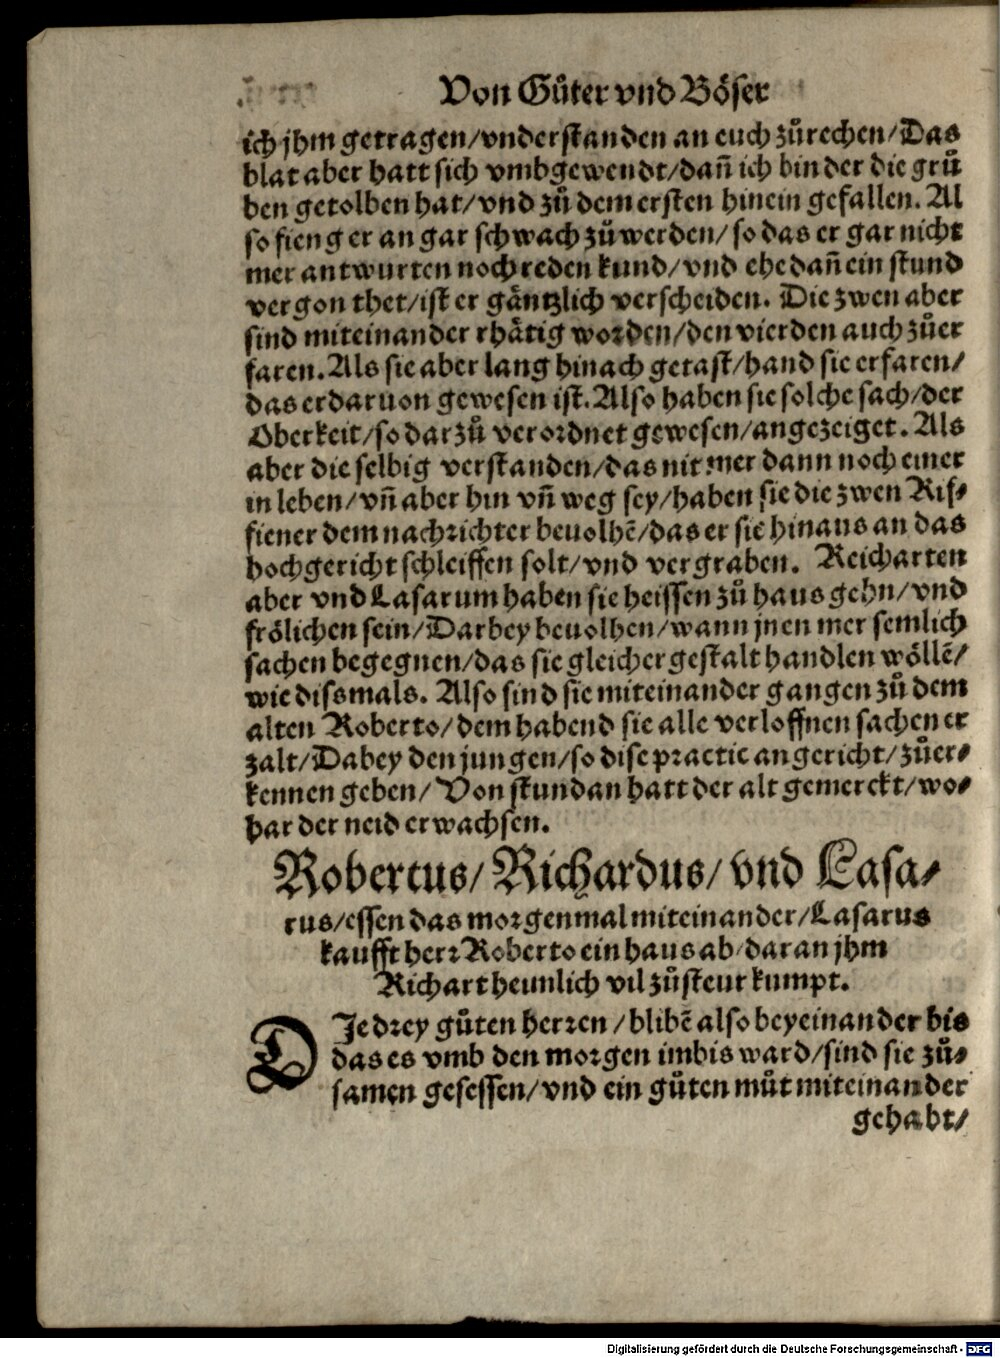 Von Gůter vnd Böser
ich jhm getragen/vnderstanden an euch zůrechen/Das
blat aber hatt sich vmbgewendt/dañ ich bin der die grů
ben getolben hat/vnd zů dem ersten hinein gefallen. Al
so fieng er an gar schwach zůwerden/so das er gar nicht
mer antwurten noch reden kund/vnd ehe dañ ein stund
vergon thet/ist er gäntzlich verscheiden. Die zwen aber
sind miteinander rhätig worden/den vierden auch zůer
faren. Als sie aber lang hinach getast/hand sie erfaren/
das er daruon gewesen ist. Also haben sie solche sach/der
Oberkeit/so darzů verordnet gewesen/angezeiget. Als
aber die selbig verstanden/das nit mer dann noch einer
in leben/vñ aber hin vñ weg sey/haben sie die zwen Rif⸗
fiener dem nachrichter beuolhẽ/das er sie hinaus an das
hochgericht schleiffen solt/vnd vergraben. Reicharten
aber vnd Lasarum haben sie heissen zů haus gehn/vnd
frölichen sein/Darbey beuolhen/wann jnen mer semlich
sachen begegnen/das sie gleicher gestalt handlen wöllẽ/
wie dissmals. Also sind sie miteinander gangen zů dem
alten Roberto/dem habend sie alle verloffnen sachen er
zalt/Dabey den jungen/so dise practic angericht/zůer⸗
kennen geben/Von stundan hatt der alt gemerckt/wo⸗
har der neid erwachsen.
Robertus/Richardus/vnd Lasa⸗
rus/essen das morgenmal miteinander/Lasarus
kaufft herr Roberto ein haus ab/daran jhm
Richart heimlich vil zůsteur kumpt.
DIe drey gůten herren/blibẽ also beyeinander bis
das es vmb den morgen imbis ward/sind sie zů⸗
samen gesessen/vnd ein gůten můt miteinander
gehabt/
Digitalisierung gefördert durch die Deutsche Forschungsgemeinschaft - DFG